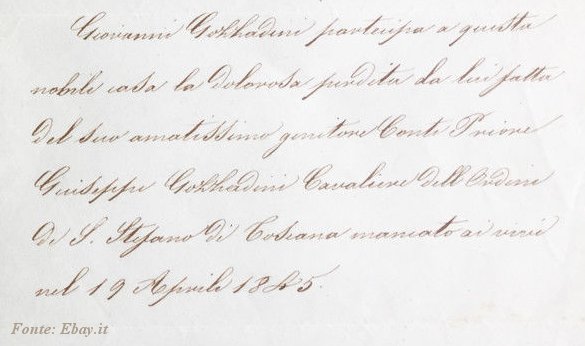 Giovanni Gozzadini partecipa a questa
nobile casa la dolorosa perdita da lui fatta
del suo amatissimo genitore Conte Priore
Giuseppe Gozzadini Cavaliere dell'Ordine
di S. Stefano di Toscana mancato ai vivi
nel 19 Aprile 1845.
Fonte: Ebay.it